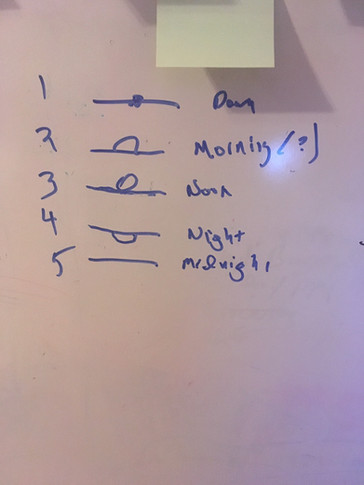 1 Dawn
2 Morning (?)
3 Noon
4 Night
5 Midnight